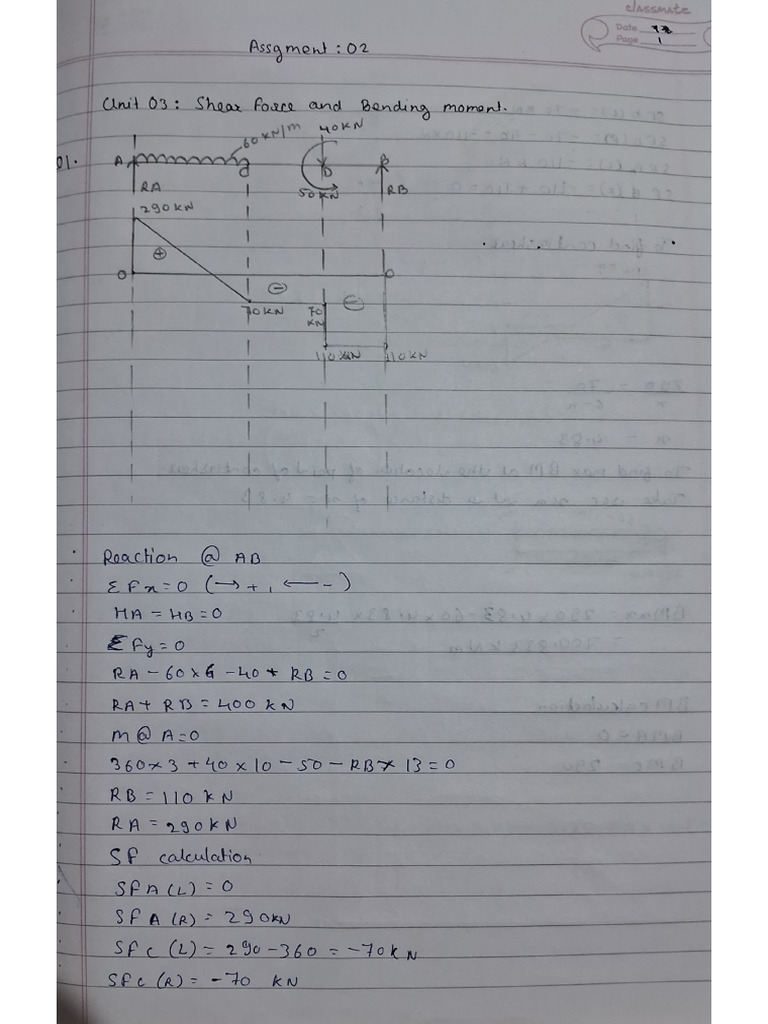 classmate
Date
Page 1
Assgment : 02
Unit 03: Shear Force and Bending moment.
01.
60 KN/m
40KN
A
C
D
B
RA
50KN
RB
290KN
+
0
0
-
-
70KN
70 KN
110 KN
110KN
Reaction @ AB
ΣFx=0 (→+, ←-)
HA = HB = 0
ΣFy=0
RA-60×6-40+RB=0
RA+RB=400 KN
M@A=0
360×3+40×10-50-RB×13=0
RB=110 KN
RA=290KN
SF calculation
SFA(L)=0
SFA(R)=290KN
SFC(L)=290-360=-70KN
SFC(R)=-70 KN